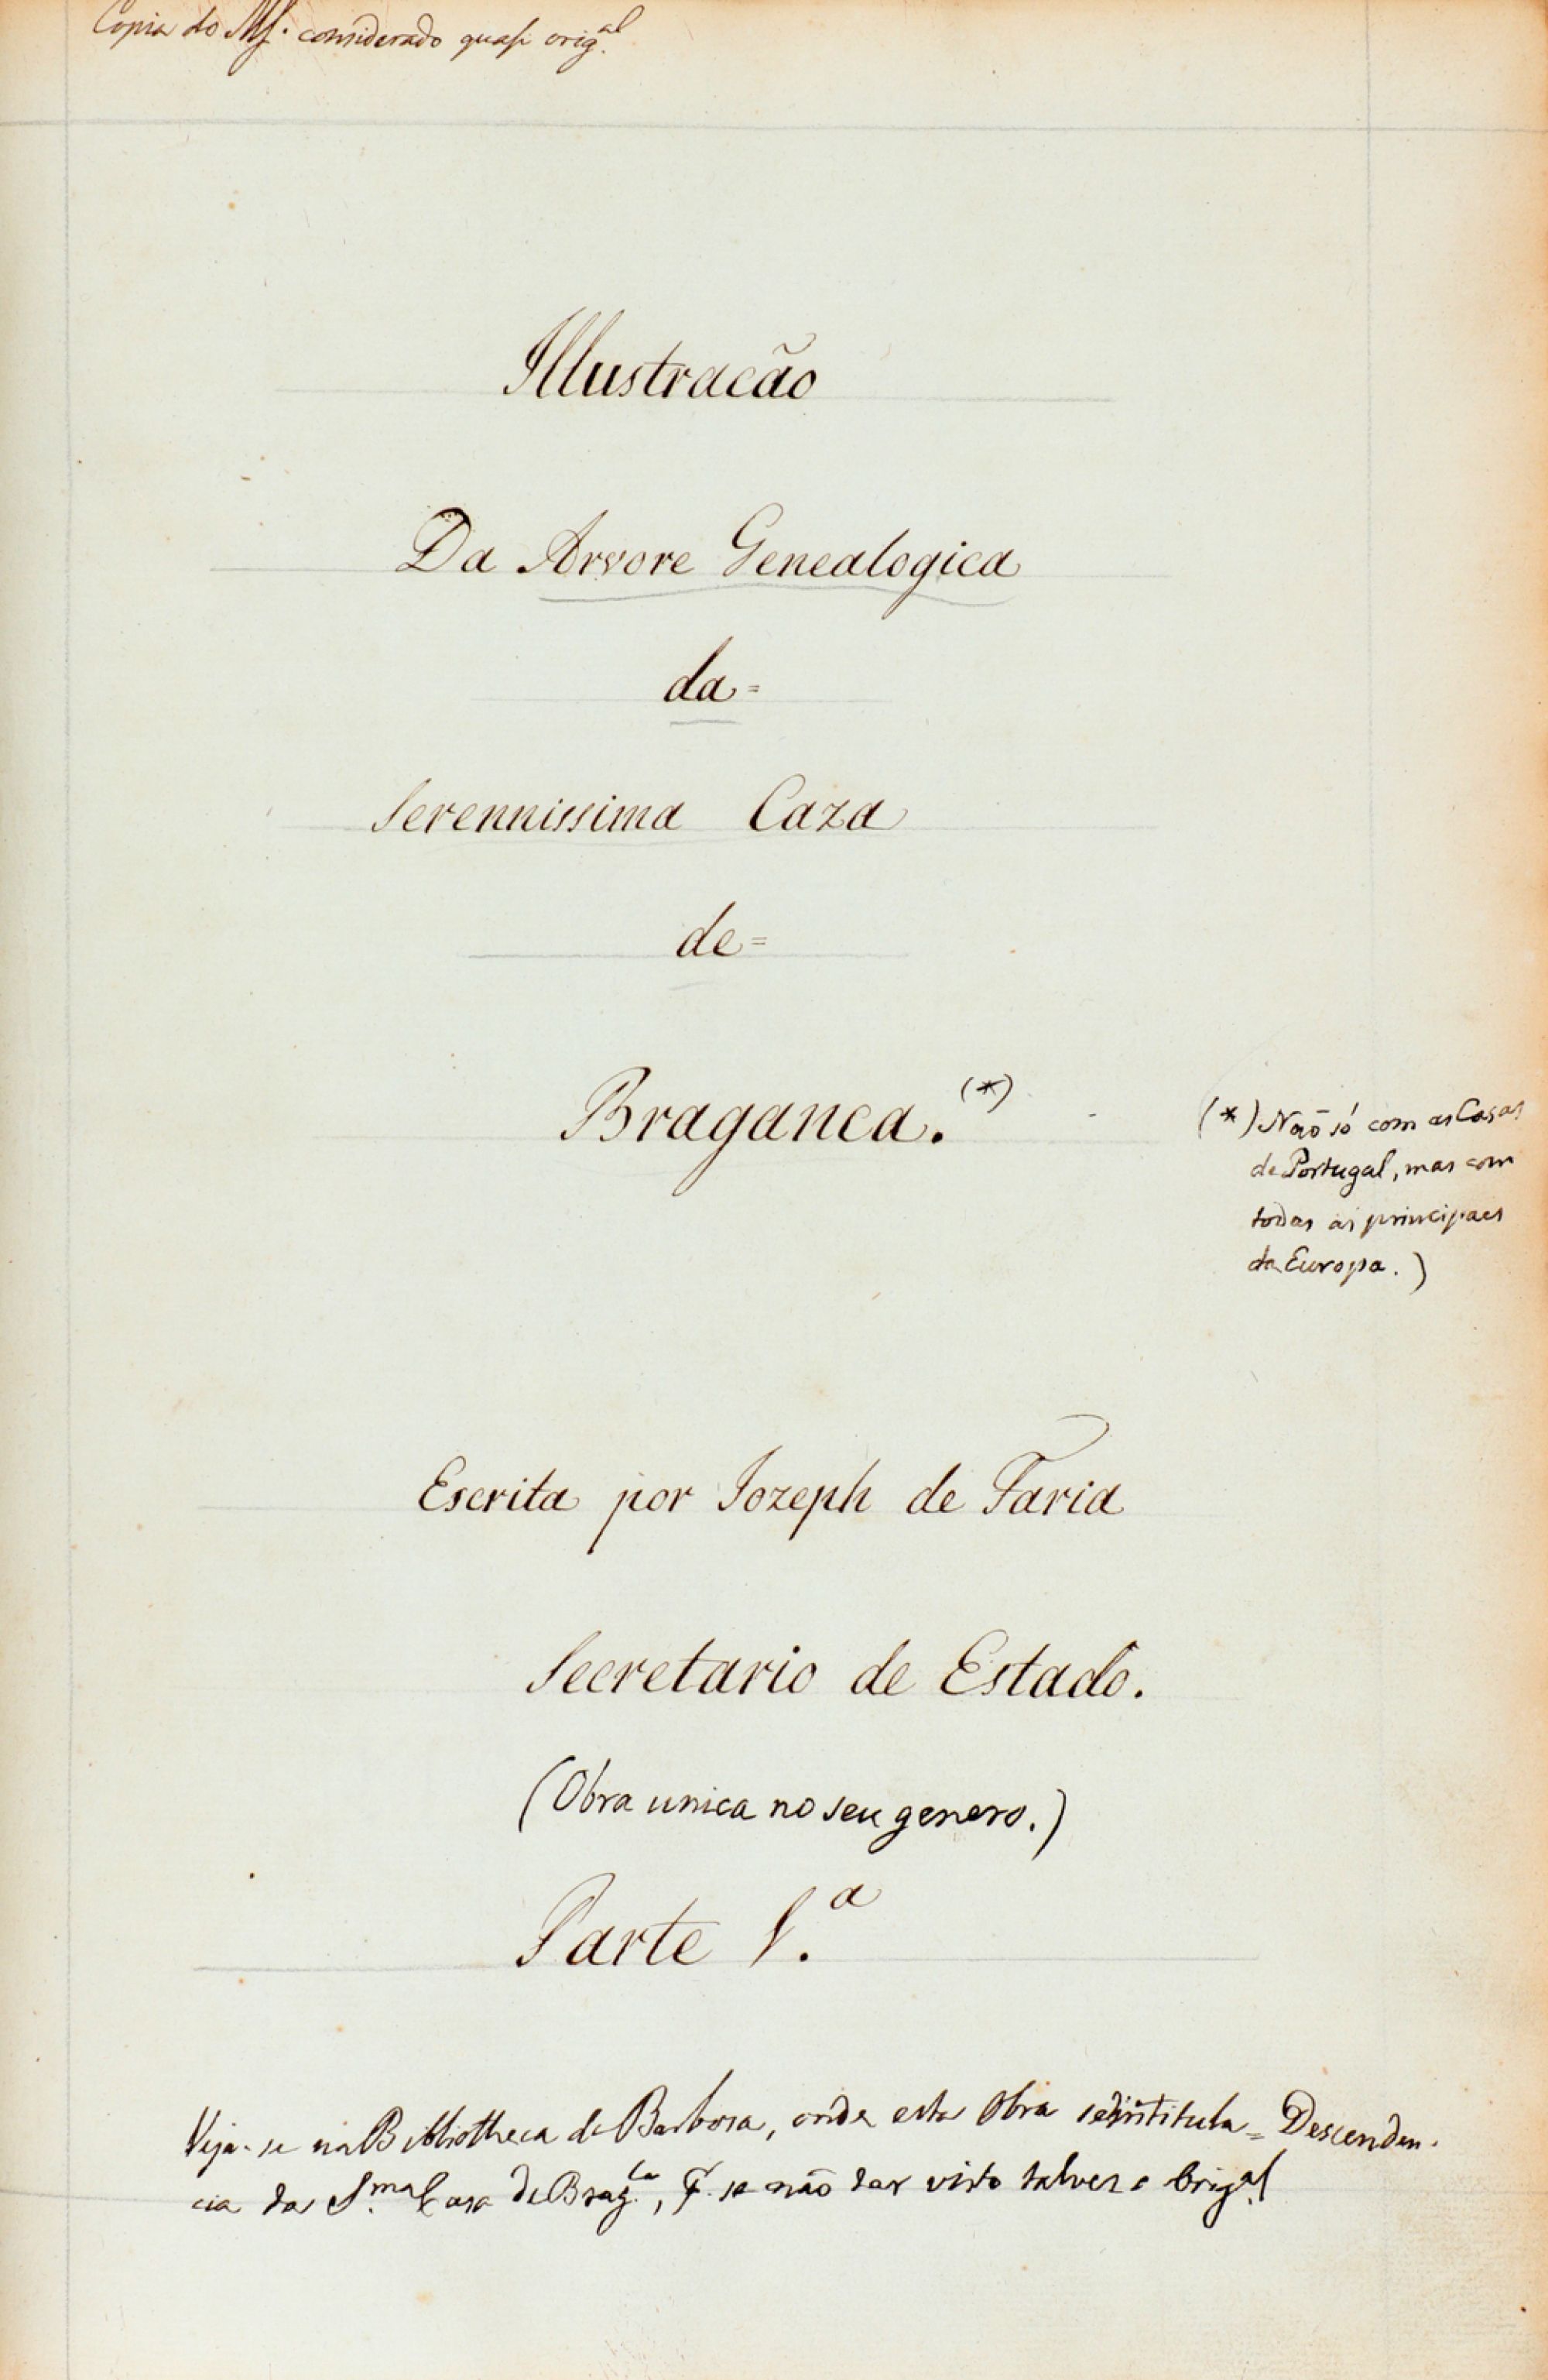 Copia do Mſ. considerado quaſi orig.al
Illustracão
Da Arvore Genealogica
da=
Serennissima Caza
de=
Braganca.(*)
(*) Não só com as Casas
de Portugal, mas com
todas as principaes
da Europa.)
Escrita por Jozeph de Faria
Secretario de Estado.
(Obra unica no seu genero.)
Parte 1.a
Veja-se na Bibliotheca de Barbosa, onde esta Obra se intitula = Descenden-
cia da S.ma Casa de Brag.ca, q. se não ter visto talvez o Orig.al